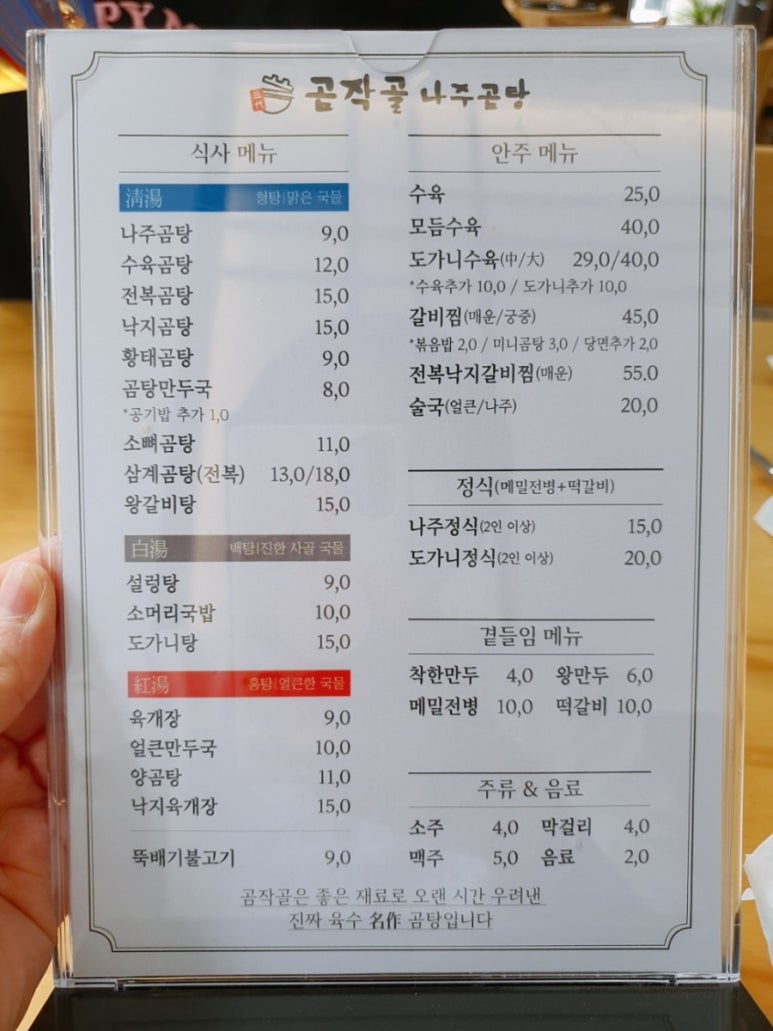 PY
三代 곰작골 나주곰탕
식사 메뉴
淸湯 청탕|맑은 국물
나주곰탕 9,0
수육곰탕 12,0
전복곰탕 15,0
낙지곰탕 15,0
황태곰탕 9,0
곰탕만두국 8,0
*공기밥 추가 1,0
소뼈곰탕 11,0
삼계곰탕(전복) 13,0/18,0
왕갈비탕 15,0
白湯 백탕|진한 사골 국물
설렁탕 9,0
소머리국밥 10,0
도가니탕 15,0
紅湯 홍탕|얼큰한 국물
육개장 9,0
얼큰만두국 10,0
양곰탕 11,0
낙지육개장 15,0
뚝배기불고기 9,0
안주 메뉴
수육 25,0
모듬수육 40,0
도가니수육(中/大) 29,0/40,0
*수육추가 10,0 / 도가니추가 10,0
갈비찜(매운/궁중) 45,0
*볶음밥 2,0 / 미니곰탕 3,0 / 당면추가 2,0
전복낙지갈비찜(매운) 55.0
술국(얼큰/나주) 20,0
정식(메밀전병+떡갈비)
나주정식(2인 이상) 15,0
도가니정식(2인 이상) 20,0
곁들임 메뉴
착한만두 4,0 왕만두 6,0
메밀전병 10,0 떡갈비 10,0
주류 & 음료
소주 4,0 막걸리 4,0
맥주 5,0 음료 2,0
곰작골은 좋은 재료로 오랜 시간 우려낸
진짜 육수 名作 곰탕입니다